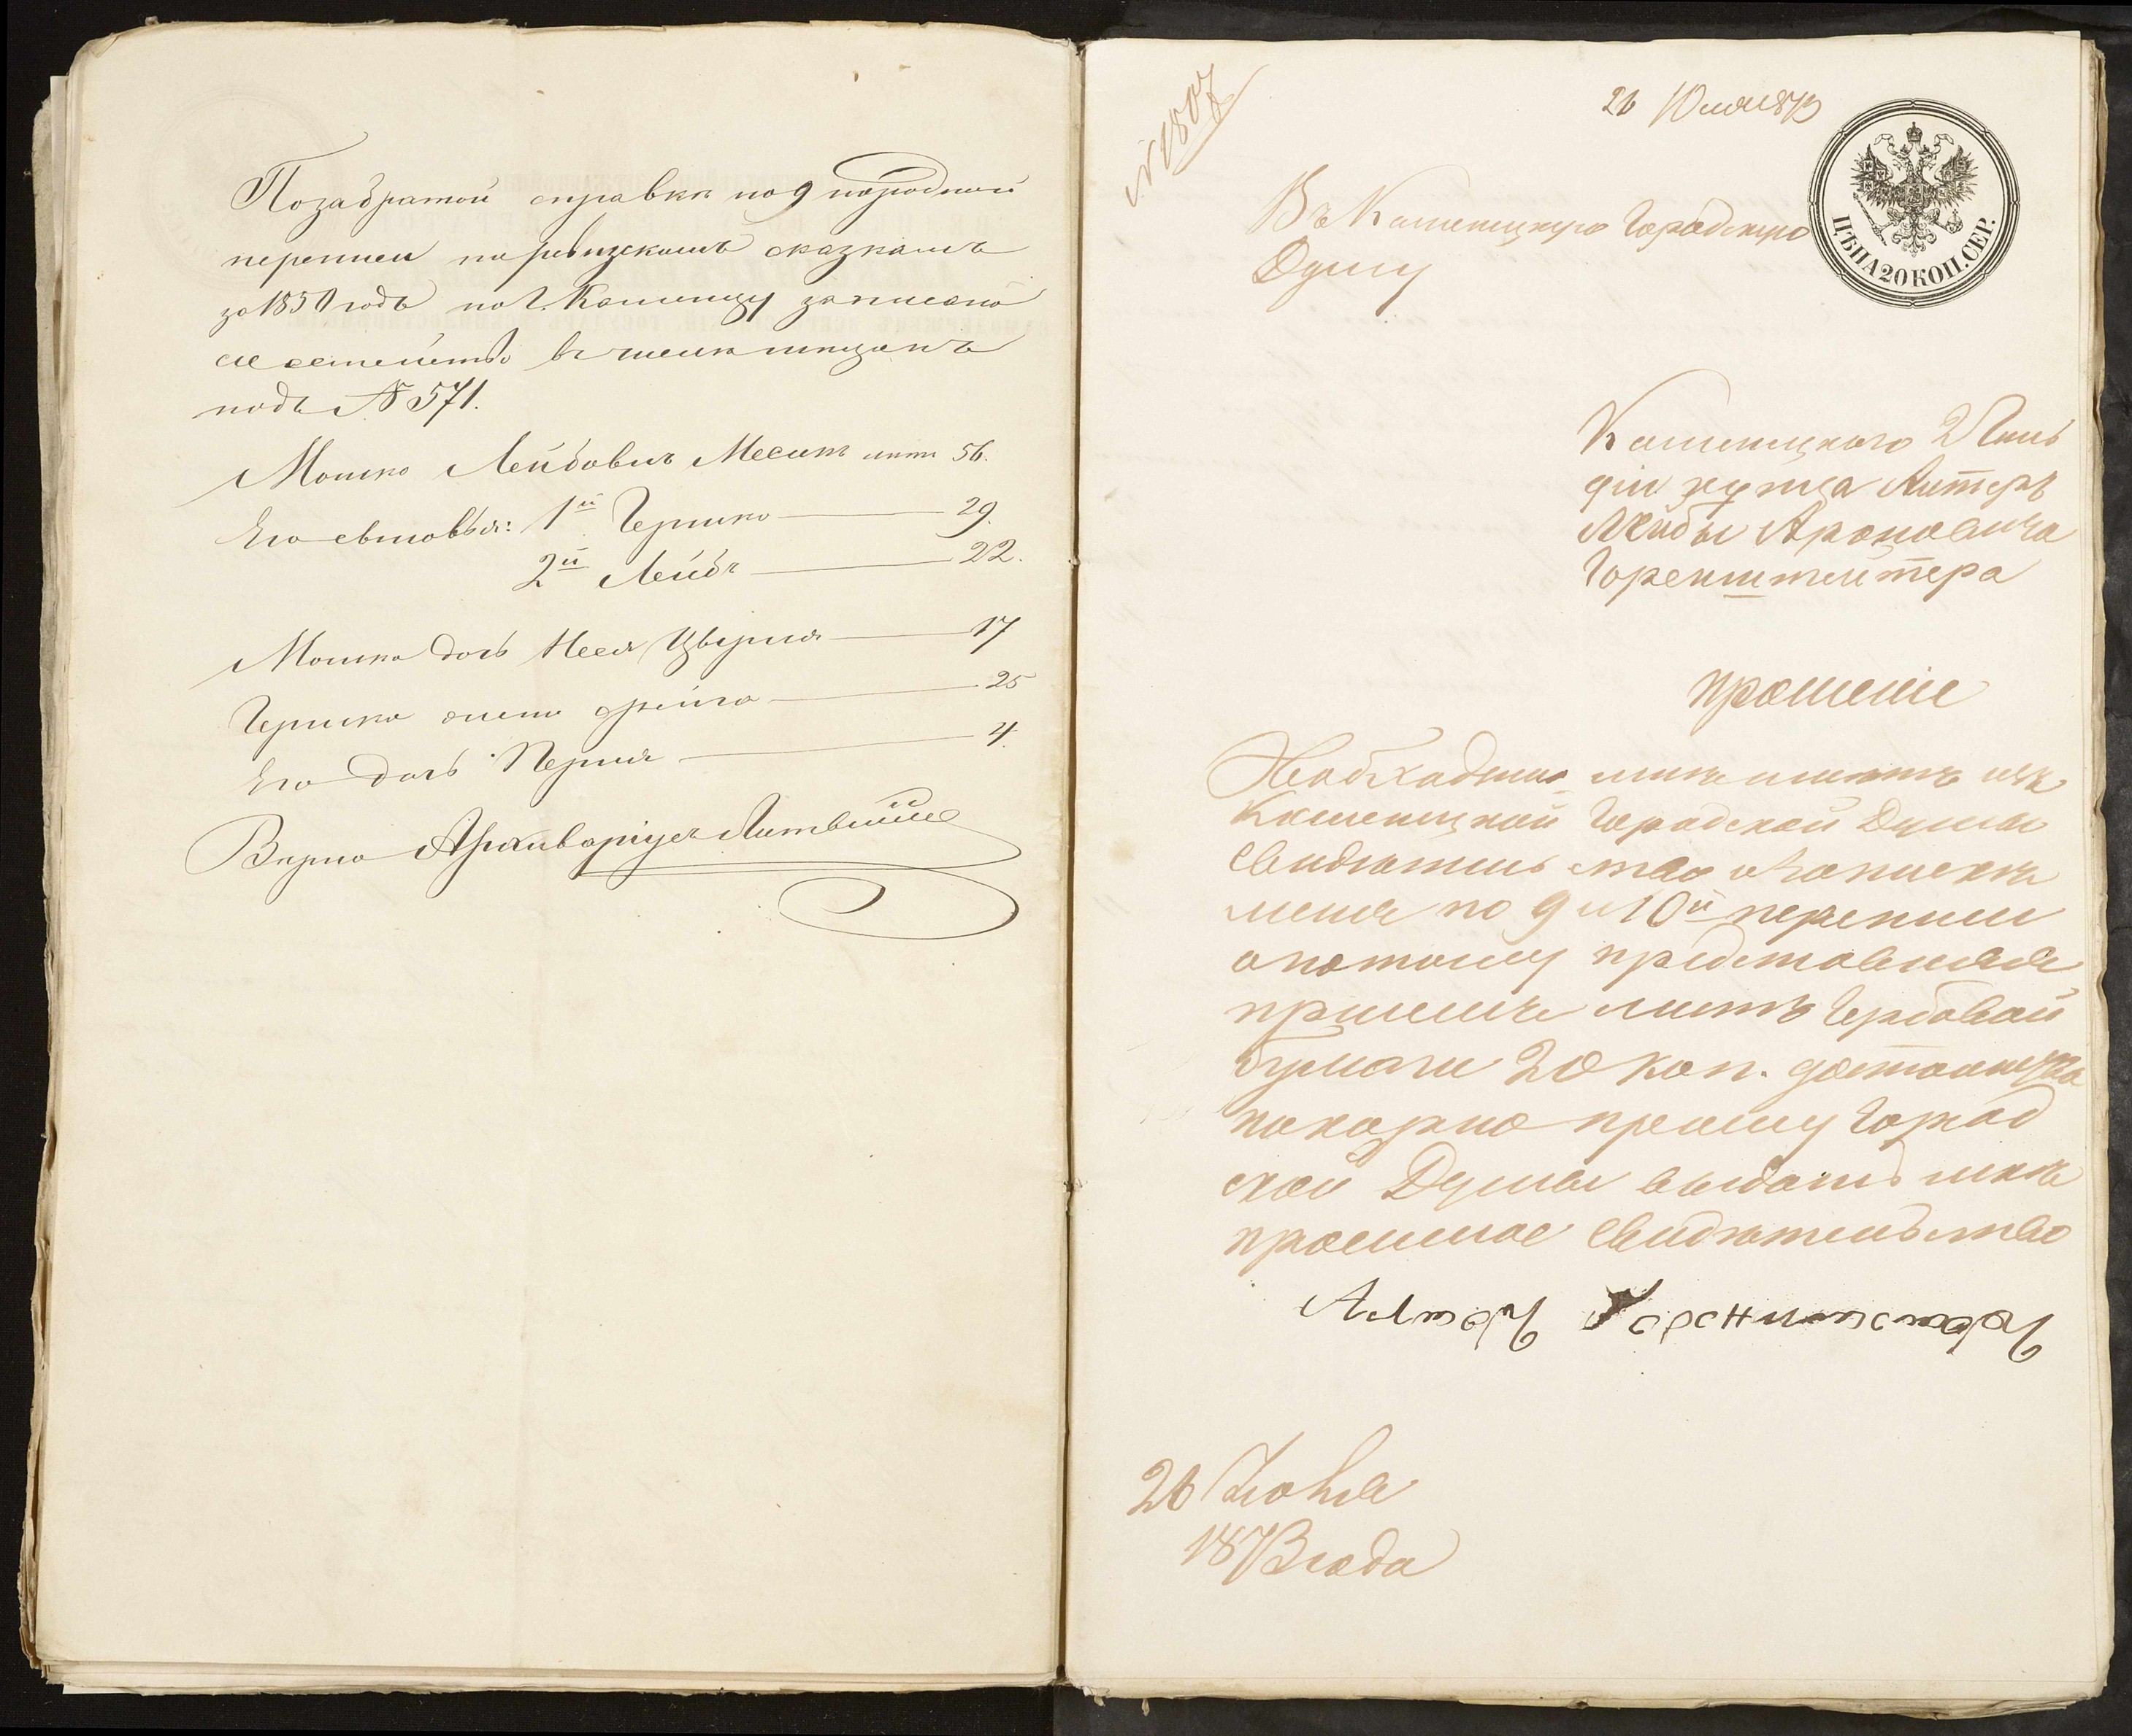 Позабратой справки по 9 народной
переписи по ревизскимъ сказкамъ
за 1850 годъ по г. Каменцу записано
семейство въ числѣ мѣщанъ
подъ № 571.
Мошко Лейбовичъ лѣтъ 56.
Его сыновья: 1й Гершко 29.
2й Лейбъ 22.
Мошка дочь Неся Цвирля 17
Гершка жена Фрейга 25
Его дочь Перля 4.
Вѣрно Архиваріусъ
№ 1807
26 Июня 1873
ЦѢНА 20 КОП. СЕР.
Въ Каменецкую Городскую
Думу
Каменецкаго 2 Гиль
діи купца Алтеръ
Лейбы Ароновича
Горенштейтера
прошеніе
Необходимо мнѣ имѣть изъ
Каменецкой Городской Думы
свидѣтельство о запискѣ
меня по 9 и 10й переписи
а потому представляя
при семъ листъ гербовой
бумаги 20 коп. достоинства
покорно прошу Город
ской Думы выдать мнѣ
просимое свидѣтельство
26 Июня
1873 года